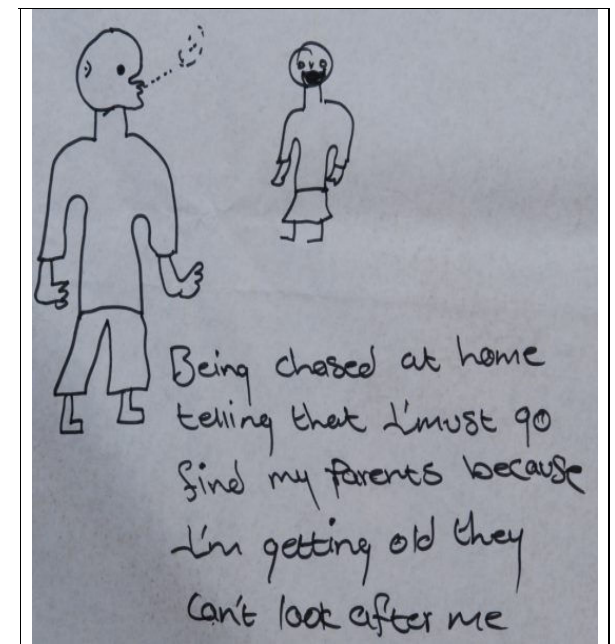 Being chased at home
telling that I'must go
find my parents because
I'm getting old they
can't look after me